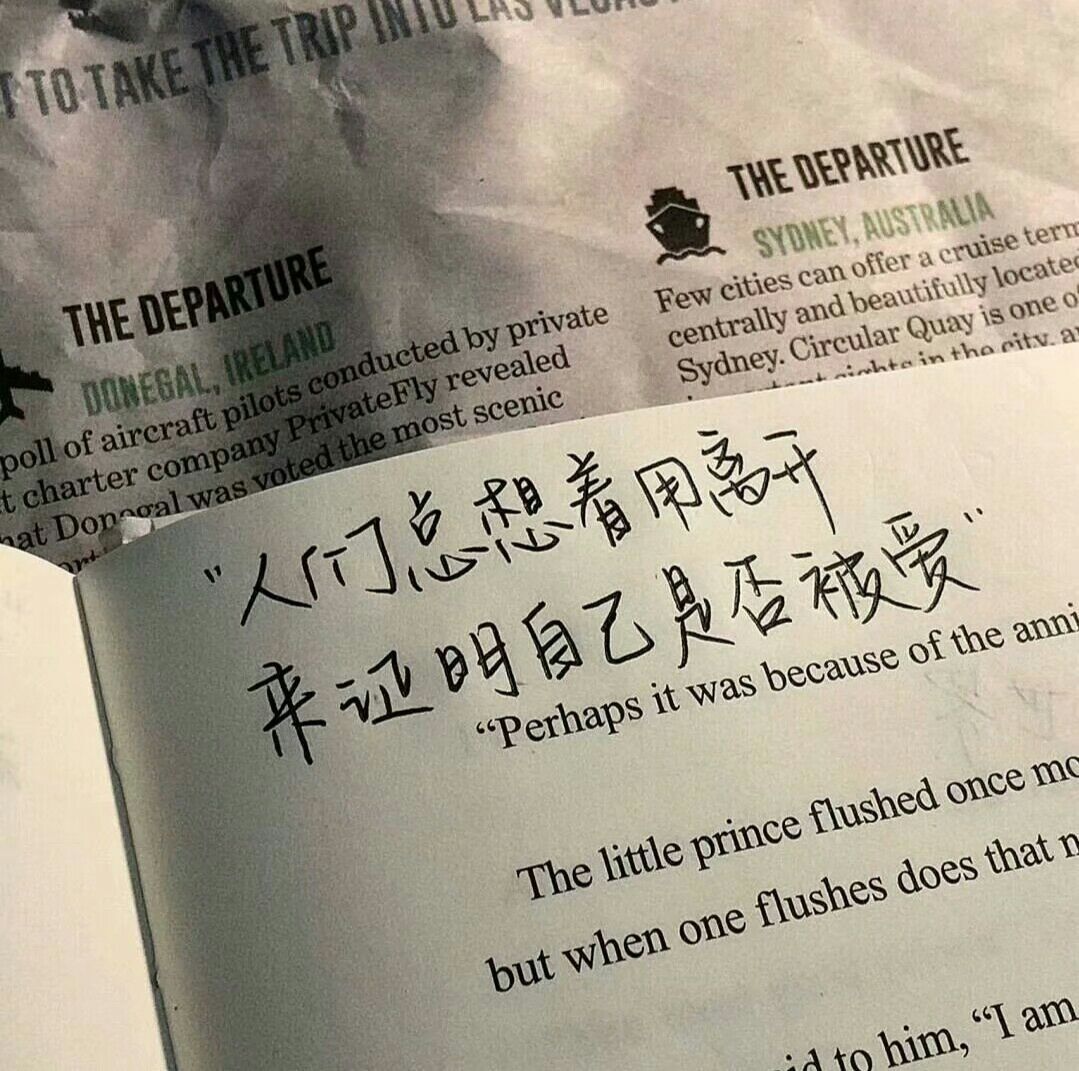 TO TAKE THE TRIP INTO LAS
THE DEPARTURE
SYDNEY, AUSTRALIA
Few cities can offer a cruise
centrally and beautifully
Sydney. Circular Quay is one
in the city,
THE DEPARTURE
DONEGAL, IRELAND
poll of aircraft pilots conducted by private
charter company PrivateFly revealed
Donegal was voted the most scenic
"人们总想着用离开
来证明自己是否被爱"
“Perhaps it was because of the
The little prince flushed once
but when one flushes does that
to him, “I am